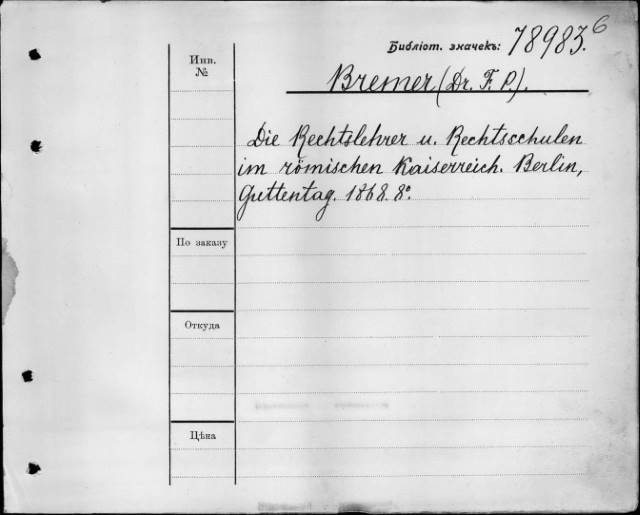 Библіот. значекъ: 78983.6
Инв.
№
Bremer (Dr. F. P.).
Die Rechtslehrer u. Rechtsschulen
im römischen Kaiserreich. Berlin,
Guttentag. 1868. 8º.
По заказу
Откуда
Цѣна